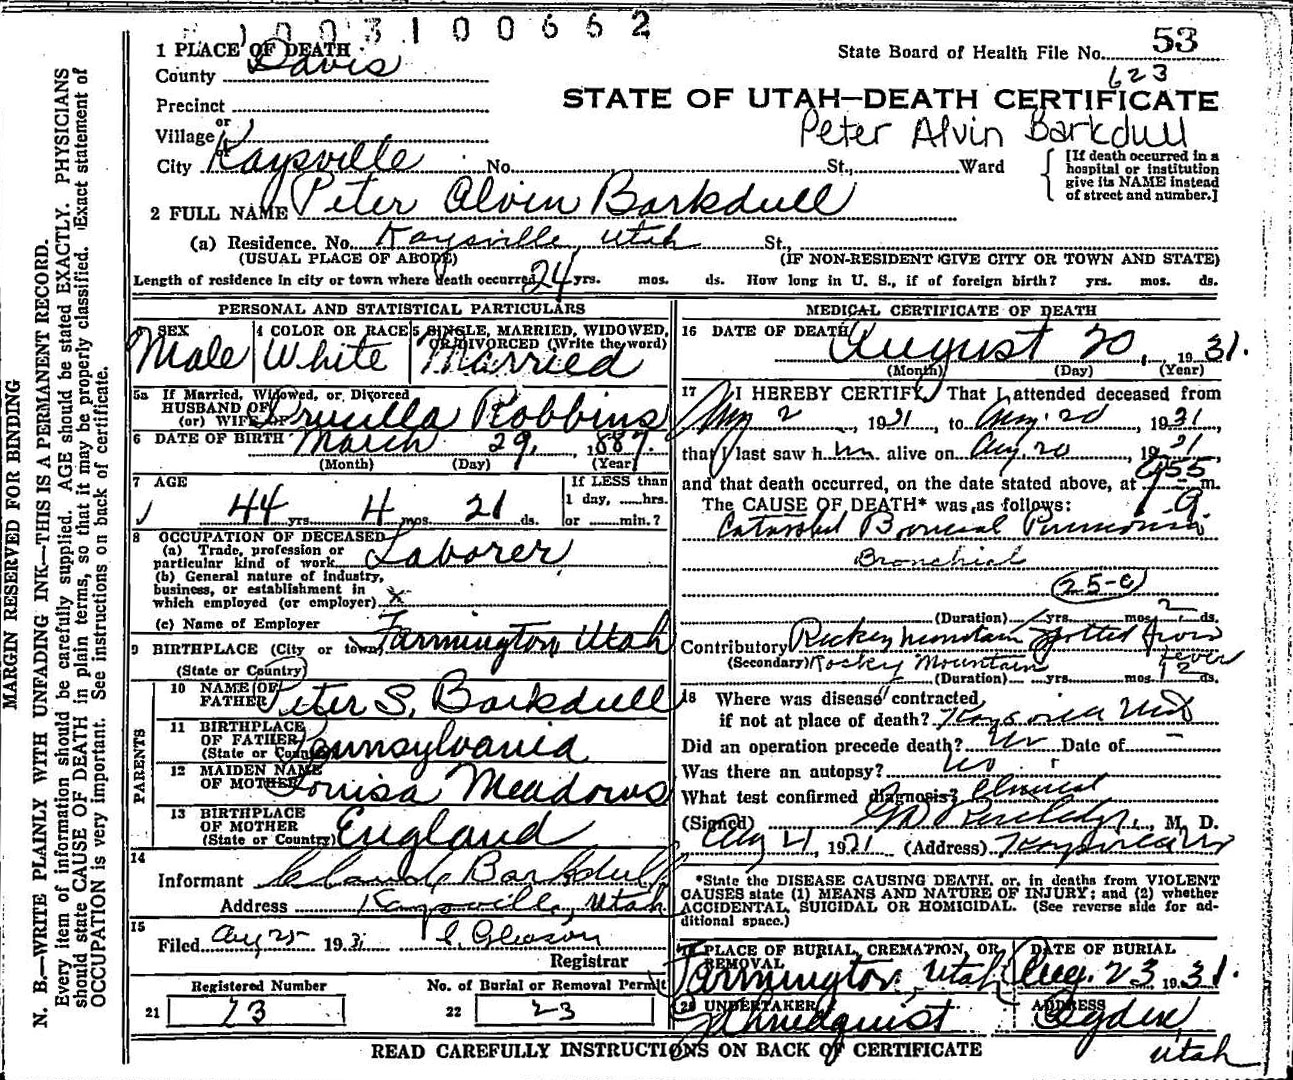 1003100662
1 PLACE OF DEATH
State Board of Health File No. 53
County Davis
623
STATE OF UTAH—DEATH CERTIFICATE
Precinct
Peter Alvin Barkdull
or
Village
or
City Kaysville No. St., Ward
[If death occurred in a
hospital or institution
give its NAME instead
of street and number.]
2 FULL NAME Peter Alvin Barkdull
(a) Residence. No. Kaysville, Utah St.,
(USUAL PLACE OF ABODE) (IF NON-RESIDENT GIVE CITY OR TOWN AND STATE)
Length of residence in city or town where death occurred 24 yrs. mos. ds. How long in U. S., if of foreign birth? yrs. mos. ds.
PERSONAL AND STATISTICAL PARTICULARS
3 SEX
Male
4 COLOR OR RACE
White
5 SINGLE, MARRIED, WIDOWED,
OR DIVORCED (Write the word)
Married
5a If Married, Widowed, or Divorced
HUSBAND OF
(or) WIFE OF Drucilla Robbins
6 DATE OF BIRTH March 29, 1887.
(Month) (Day) (Year)
7 AGE
44 yrs. 4 mos. 21 ds.
If LESS than
1 day, ......hrs.
or ......min.?
8 OCCUPATION OF DECEASED
(a) Trade, profession or
particular kind of work Laborer
(b) General nature of industry,
business, or establishment in
which employed (or employer) x
(c) Name of Employer
9 BIRTHPLACE (City or town) Farmington, Utah
(State or Country)
PARENTS
10 NAME OF
FATHER Peter S. Barkdull
11 BIRTHPLACE
OF FATHER
(State or Country) Pennsylvania
12 MAIDEN NAME
OF MOTHER Louisa Meadows
13 BIRTHPLACE
OF MOTHER
(State or Country) England
14
Informant Claude Barkdull
Address Kaysville, Utah
15
Filed Aug 25 193 Gleason
Registrar
Registered Number
21 23
No. of Burial or Removal Permit
22 23
MEDICAL CERTIFICATE OF DEATH
16 DATE OF DEATH
August 20, 1931.
(Month) (Day) (Year)
17 I HEREBY CERTIFY, That I attended deceased from
Aug 2, 1931, to Aug. 20, 1931
that I last saw him alive on Aug. 20, 1931
and that death occurred, on the date stated above, at 955 m.
The CAUSE OF DEATH* was as follows: a
Catarrhal Pneumonia
Bronchial
(25-c)
(Duration) yrs. mos. 2 ds.
Contributory Rocky Mountain Spotted Fever
(Secondary) Rocky Mountain Fever
(Duration) yrs. mos. 12 ds.
18 Where was disease contracted
if not at place of death? Kaysville Utah
Did an operation precede death? No Date of —
Was there an autopsy? No
What test confirmed diagnosis? Clinical
(Signed) M. D.
Aug 21, 1931 (Address) Kaysville
*State the DISEASE CAUSING DEATH, or, in deaths from VIOLENT
CAUSES state (1) MEANS AND NATURE OF INJURY; and (2) whether
ACCIDENTAL, SUICIDAL OR HOMICIDAL. (See reverse side for ad-
ditional space.)
19 PLACE OF BURIAL, CREMATION, OR
REMOVAL
Farmington, Utah
DATE OF BURIAL
Aug. 23 1931.
20 UNDERTAKER
Lindquist
ADDRESS
Ogden,
Utah
READ CAREFULLY INSTRUCTIONS ON BACK OF CERTIFICATE
MARGIN RESERVED FOR BINDING
N. B.—WRITE PLAINLY WITH UNFADING INK—THIS IS A PERMANENT RECORD.
Every item of information should be carefully supplied. AGE should be stated EXACTLY. PHYSICIANS
should state CAUSE OF DEATH in plain terms, so that it may be properly classified. Exact statement of
OCCUPATION is very important. See instructions on back of certificate.